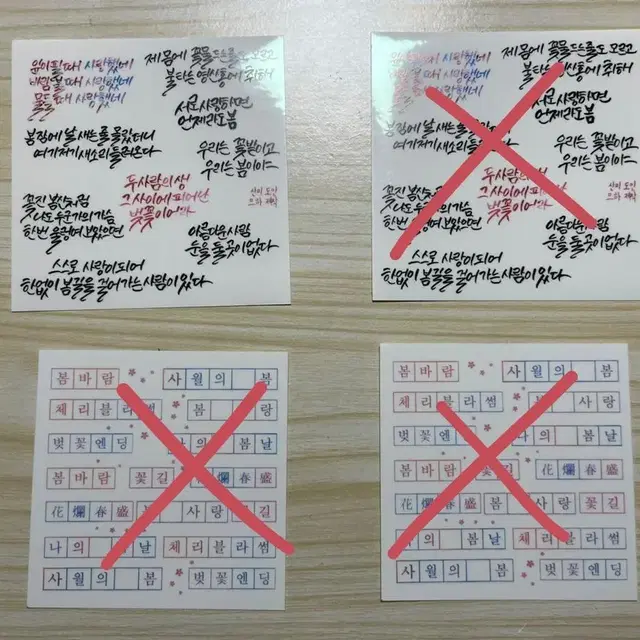 꽃이 필 때 사랑했네
바람 불 때 사랑했네
물들 때 사랑했네
제 몸에 꽃물 드는 줄도 모르고
불타는 영산홍에 취해
서로 사랑하면
언제라도 봄
봄 잠에 날 새는 줄 몰랐더니
여기저기 새소리 들려온다
우리는 꽃밭이고
우리는 봄이야
두 사람의 생
그 사이에 피어난
벚꽃이어라
꽃진 봄
나도 누군가의 가슴
한번 울렁여 보았으면
아름다운 사람
눈을 둘 곳이 없다
스스로 사랑이 되어
한없이 봄길을 걸어가는 사람이 있다
사랑했네
바람 불 때 사랑했네
사랑했네
제 몸에 꽃물 드는 줄도 모르고
불타는 영산홍에 취해
서로 사랑하면
언제라도 봄
봄 잠에 날 새는 줄
여기저기 새소리 들려온다
우리는 꽃밭이고
우리는 봄이야
두 사람의 생
그 사이에 피어난
벚꽃이어라
꽃진 봄
나도 누군가의 가슴
한번 울렁여 보았으면
아름다운 사람
눈을 둘 곳이 없다
스스로 사랑이 되어
한없이 봄길을 걸어가는 사람이 있다
봄바람 사월의 봄
체리블라썸 봄 랑
벚꽃엔딩 나의 봄날
봄바람 꽃길 爛春盛
花爛春盛 봄 사랑 길
나의 날 체리블라썸
사월의 봄 벚꽃엔딩
봄바람 사월의 봄
체리블라썸 봄 사랑
벚꽃엔 나의 봄날
봄바람 꽃길 花爛春盛
花爛春盛 봄 사랑 꽃길
의 봄날 체리블라썸
사월의 봄 벚꽃엔딩